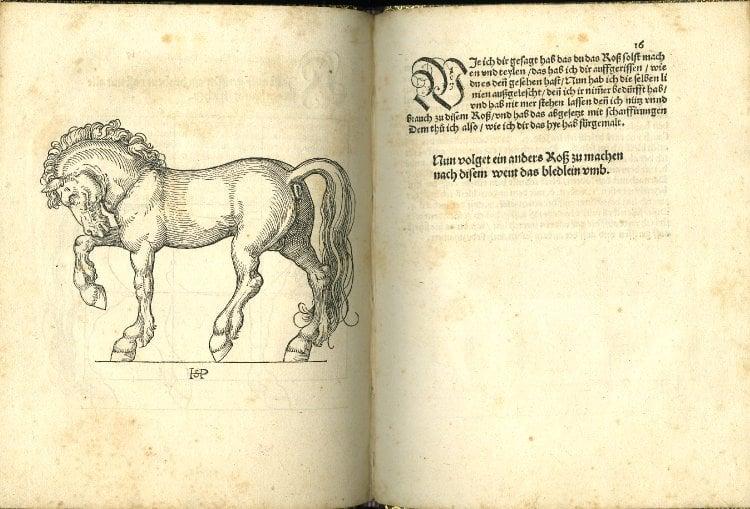 HSP
16
WJe ich dir gesagt hab das du das Roß solst mach
en vnd teylen /das hab ich dir auffgerissen / wie
du es deñ gesehen hast/Nun hab ich die selben li
nien außgelescht/deñ ich ir nim̃er bedürfft hab/
vnd hab nit mer stehen lassen deñ ich nütz vnnd
brauch zu disem Roß/vnd hab das abgesetzt mit scharffirungen
Dem thů ich also / wie ich dir das hye hab fürgemalt.
Nun volget ein anders Roß zu machen
nach disem went das bledlein vmb.